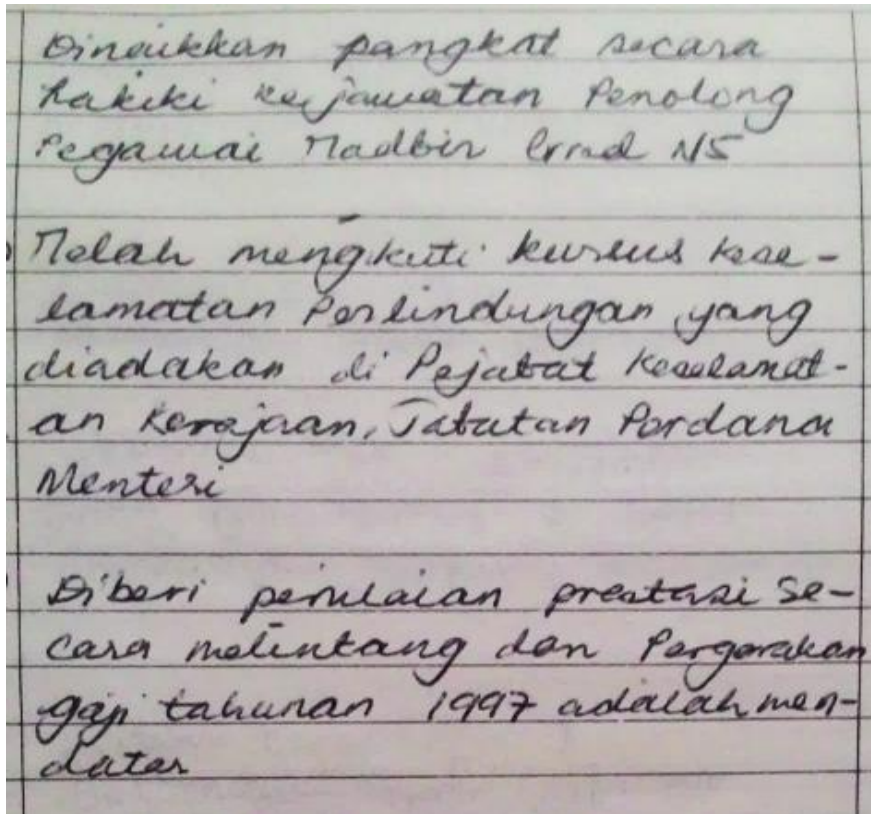 Dinaikkan pangkat secara
hakiki ke jawatan Penolong
Pegawai Tadbir Gred N5
Telah mengikuti kursus Kese-
lamatan Perlindungan yang
diadakan di Pejabat Keselamat-
an Kerajaan, Jabatan Perdana
Menteri
Diberi penilaian prestasi se-
cara melintang dan Pergerakan
gaji tahunan 1997 adalah men-
datar